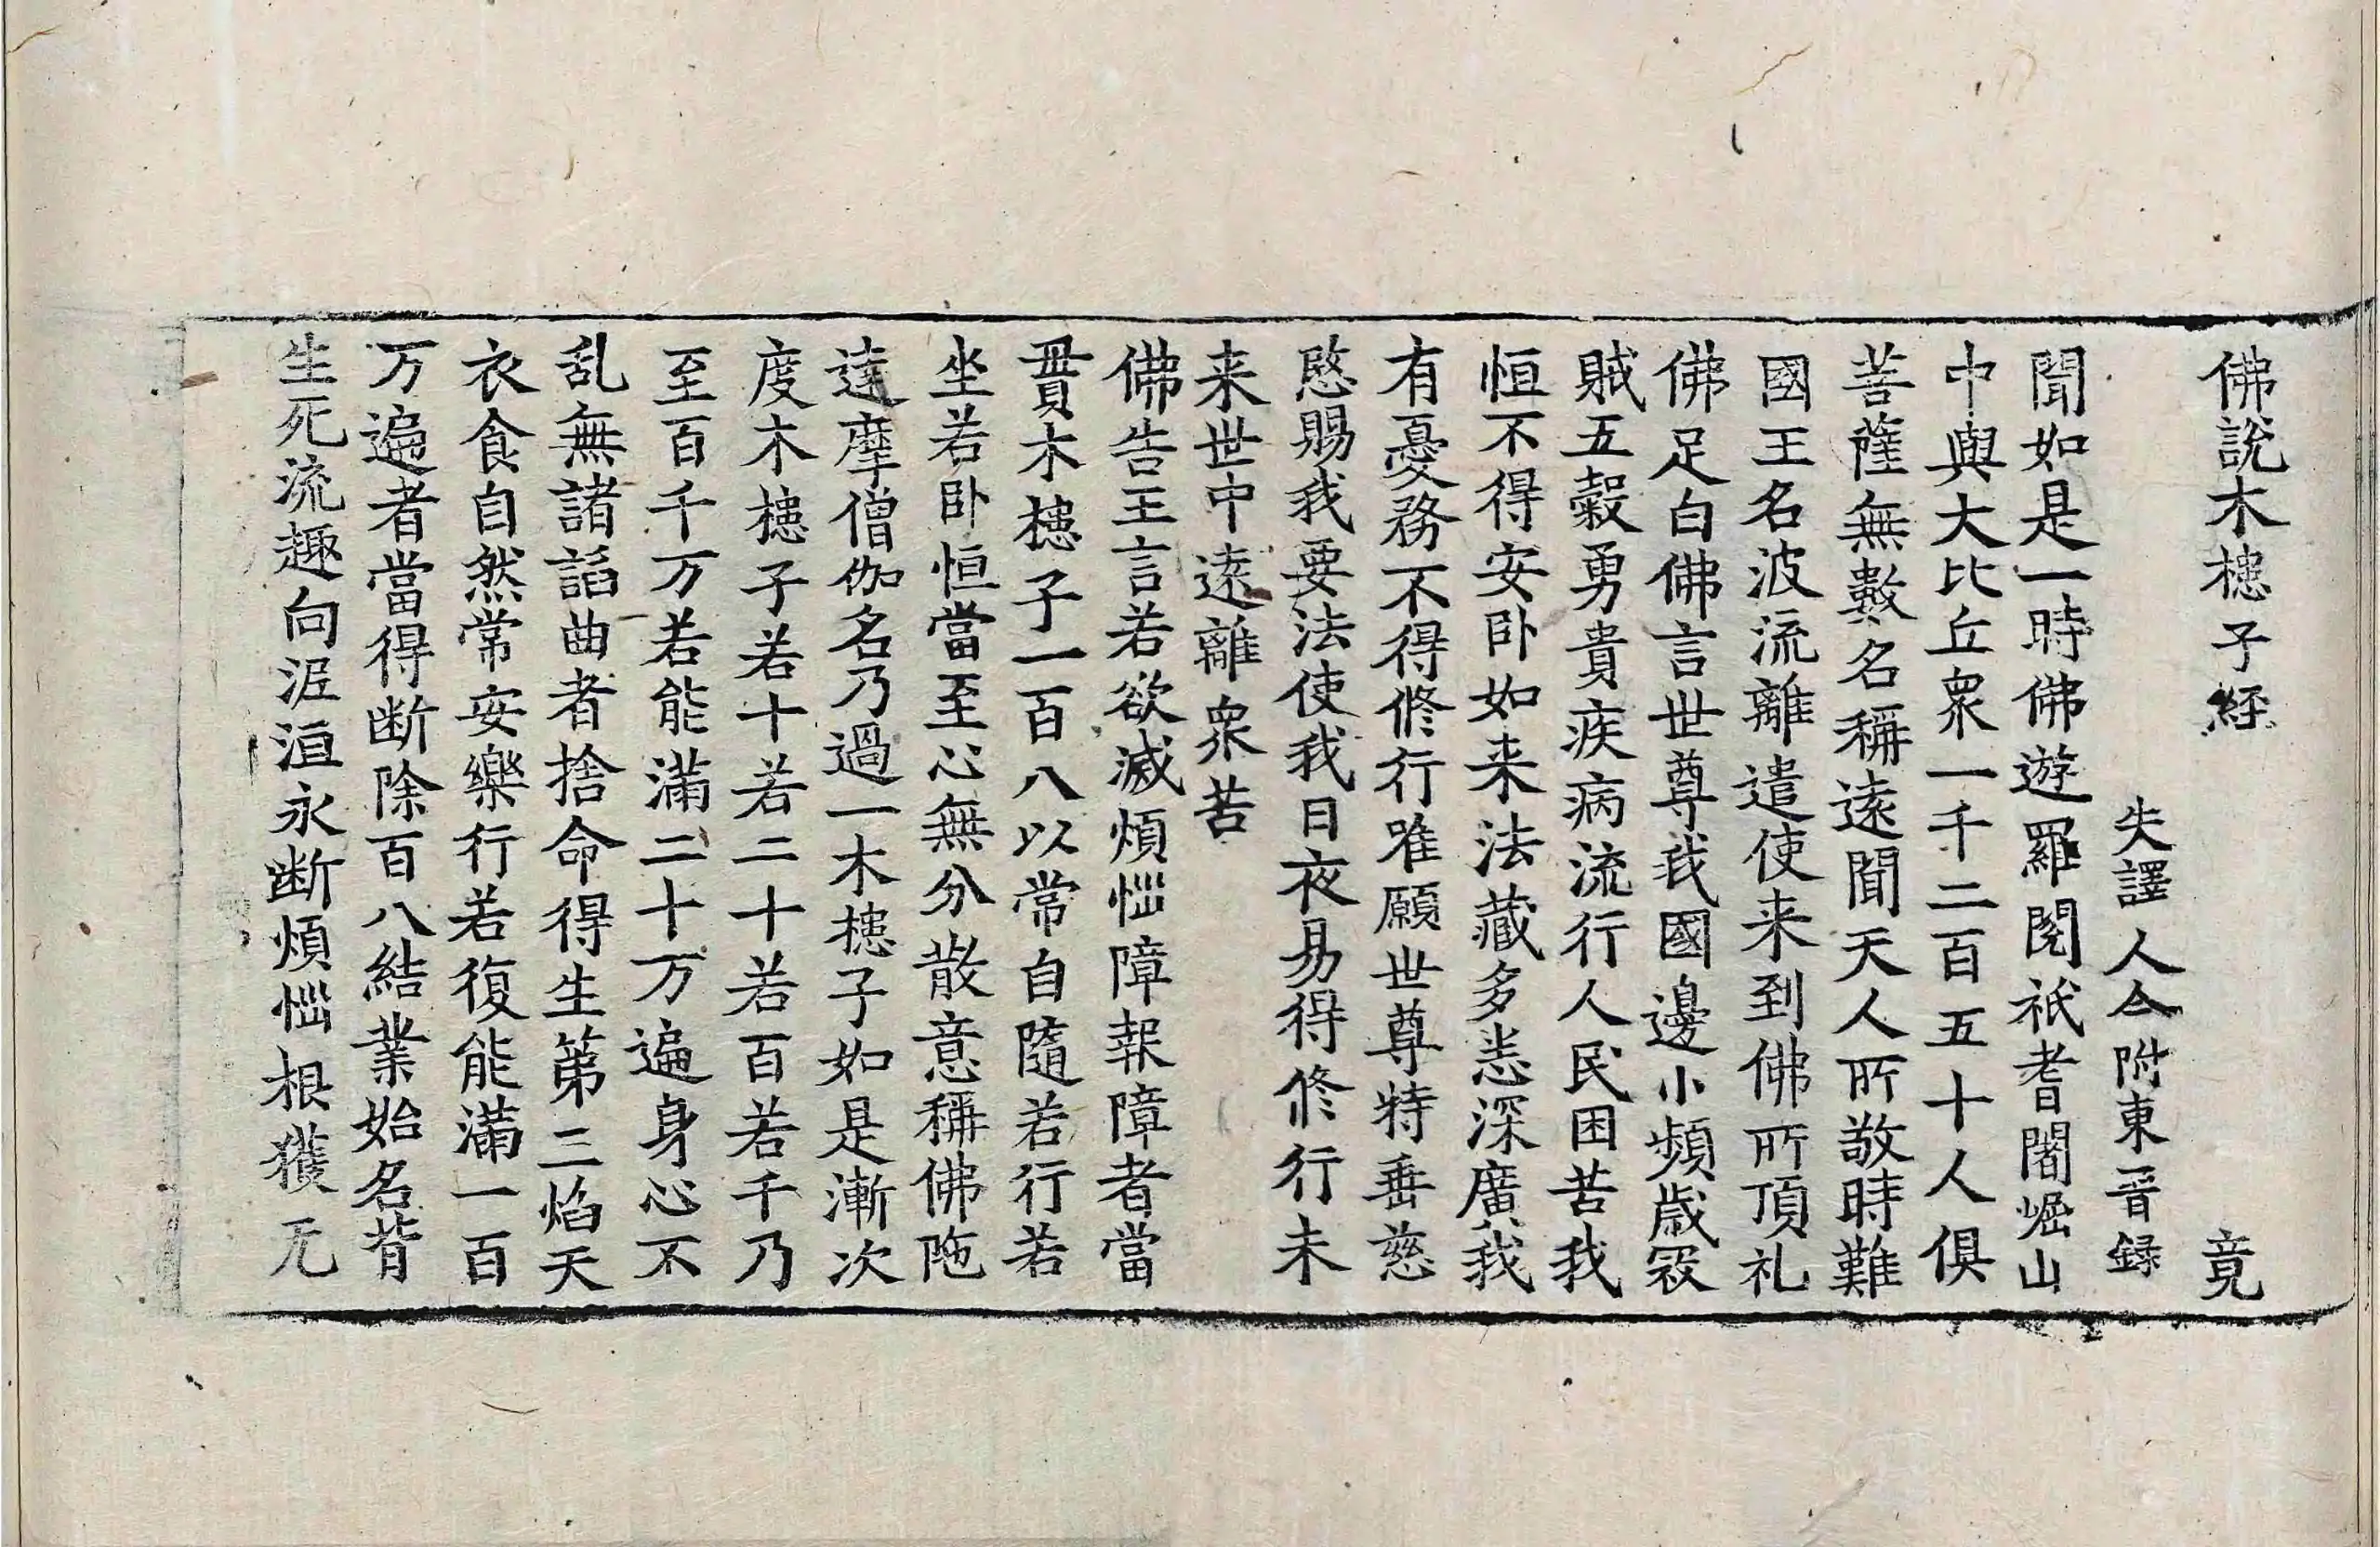 佛說木槵子經 竟
失譯人今附東晋録
聞如是一時佛遊羅閱祇耆闍崛山
中與大比丘衆一千二百五十人俱
菩薩無數名稱遠聞天人所敬時難
國王名波流離遣使来到佛所頂礼
佛足白佛言世尊我國邊小頻歲寇
賊五穀勇貴疾病流行人民困苦我
恒不得安卧如来法藏多悉深廣我
有憂務不得修行唯願世尊特垂慈
愍賜我要法使我日夜易得修行未
来世中遠離衆苦
佛告王言若欲滅煩惱障報障者當
貫木槵子一百八以常自隨若行若
坐若卧恒當至心無分散意稱佛陁
達摩僧伽名乃過一木槵子如是漸次
度木槵子若十若二十若百若千乃
至百千万若能滿二十万遍身心不
乱無諸諂曲者捨命得生第三焰天
衣食自然常安樂行若復能滿一百
万遍者當得断除百八結業始名背
生死流趣向泥洹永断煩惱根獲无